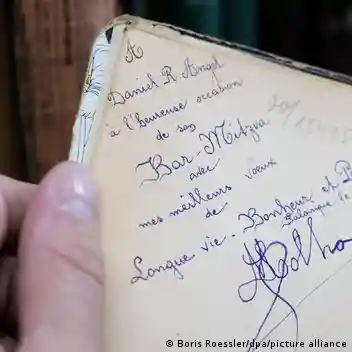 A
Daniel R. Angel
à l'heureuse occasion
de son
Bar-Mitzva
avec
mes meilleurs voeux
de
Longue vie - Bonheur et
© Boris Roessler/dpa/picture alliance